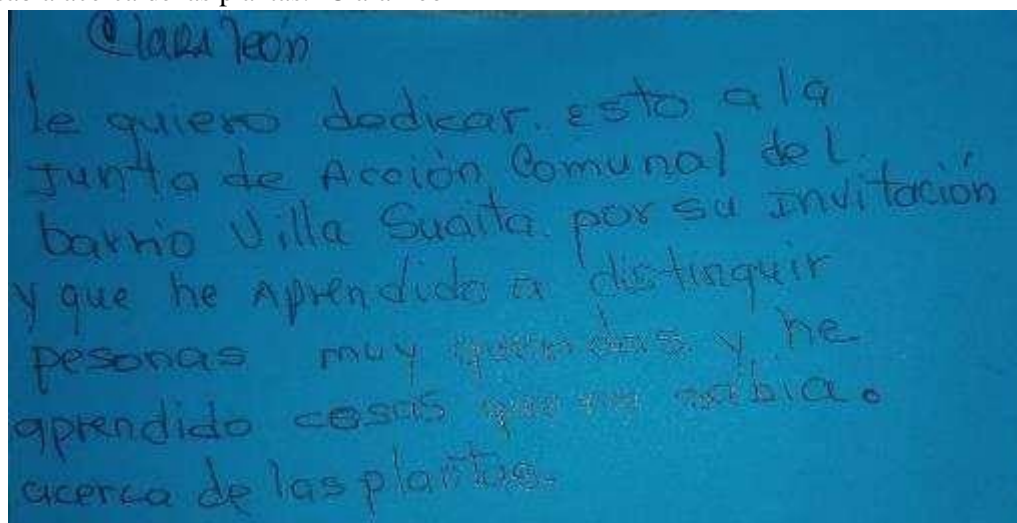 Clara león
le quiero dedicar. Esto a la
Junta de Acción Comunal del
barrio Villa Suaita. por su Invitación
y que he Aprendido a distinguir
pesonas muy queridas y he
aprendido cosas que no sabia.
acerca de las plantas.